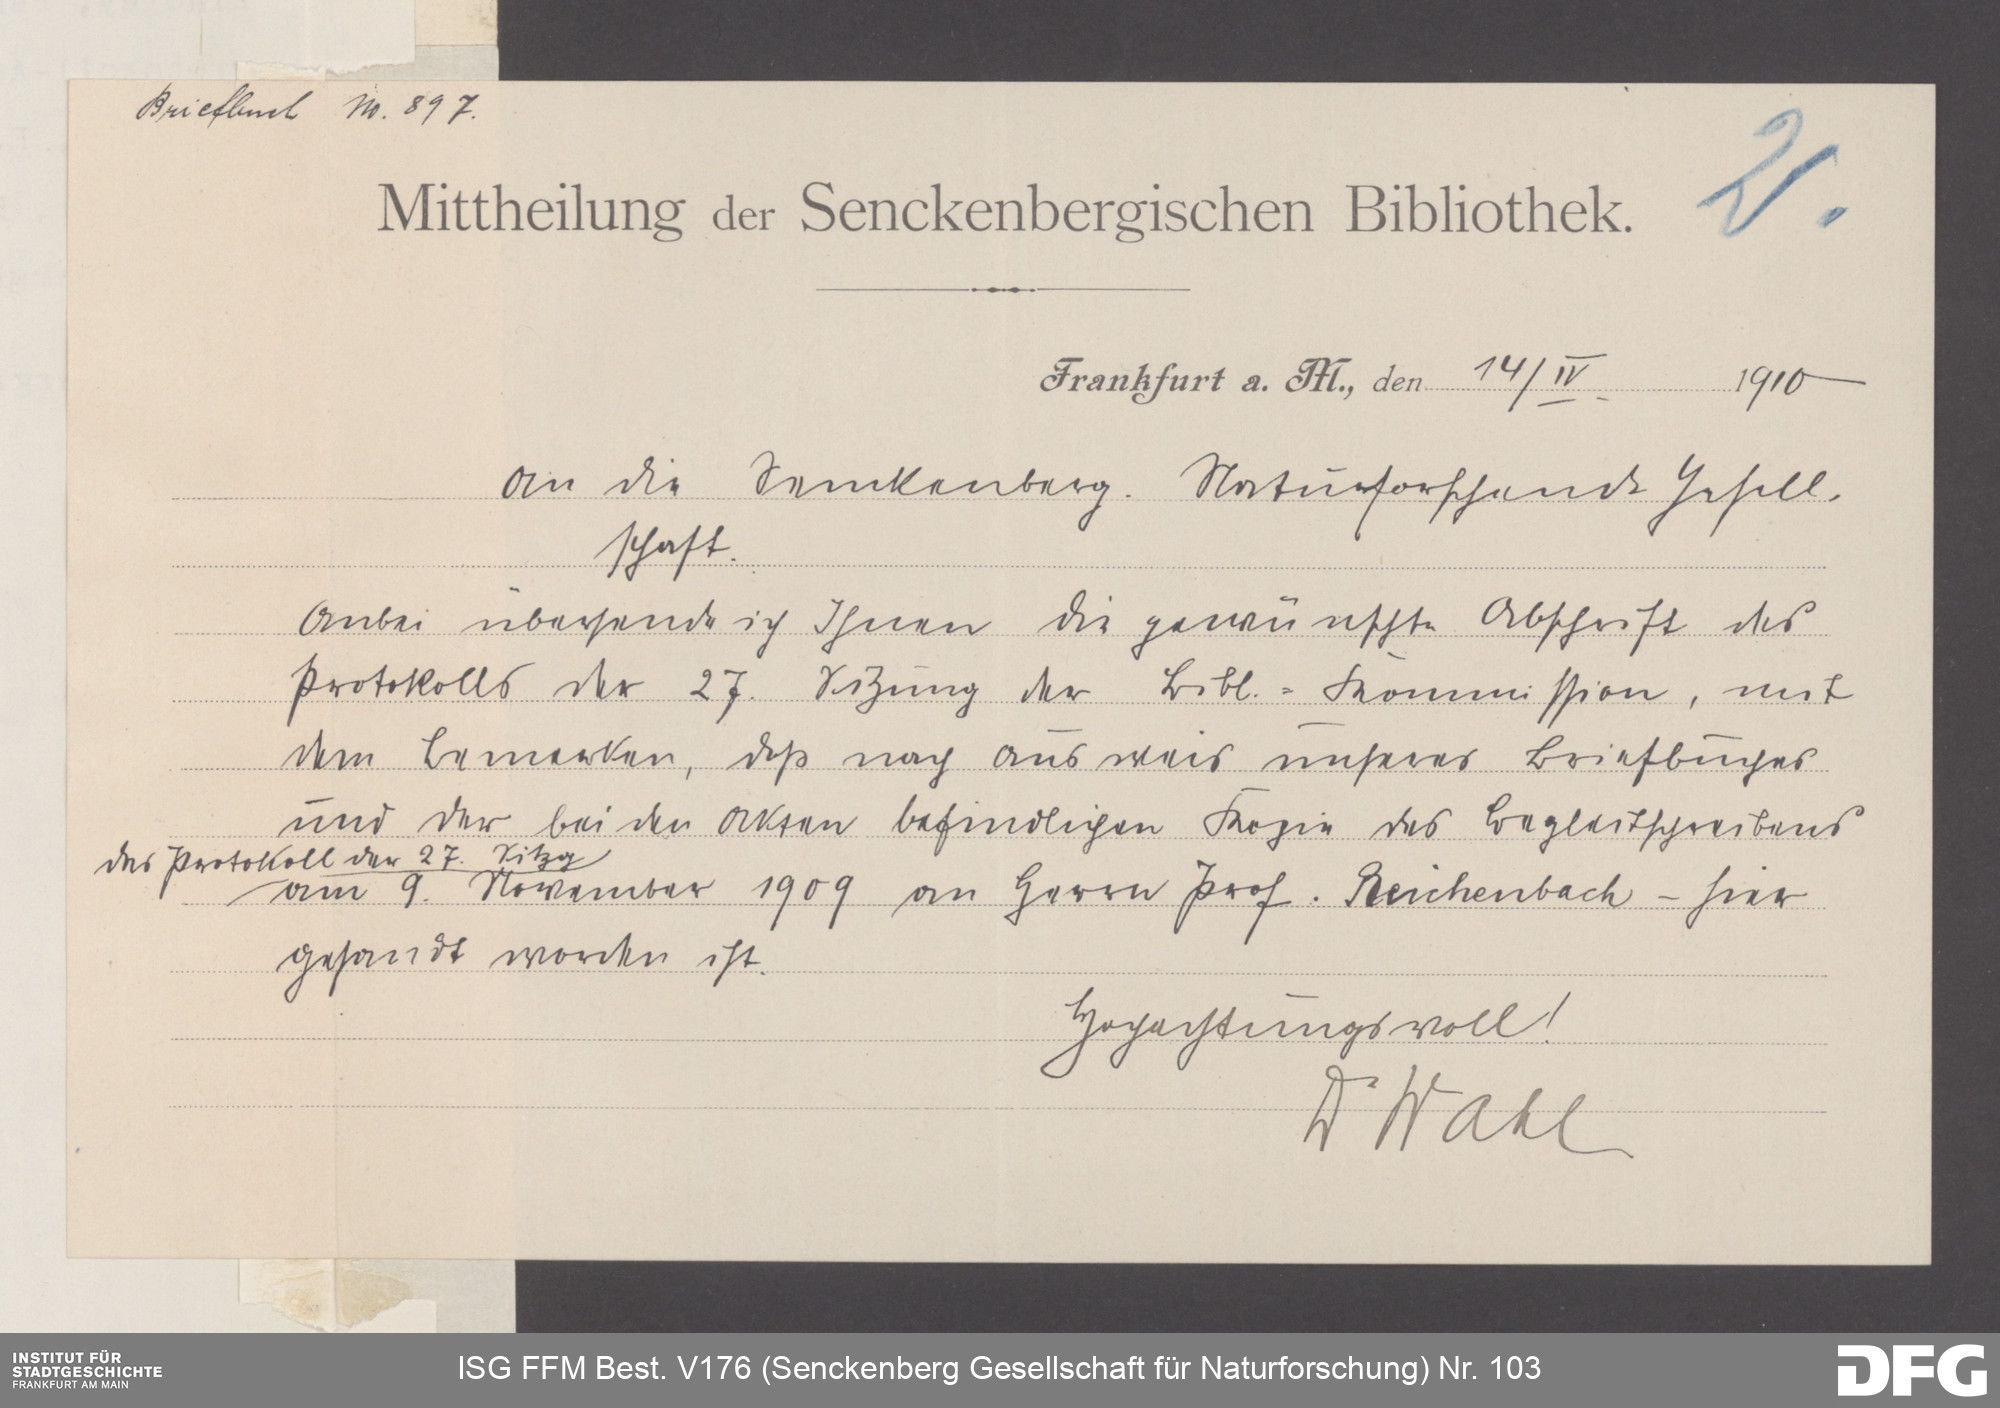 Briefbuch No. 897.
Mittheilung der Senckenbergischen Bibliothek.
Frankfurt a. M., den 14/IV. 1910
An die Senckenberg. Naturforschende Gesell-
schaft.
Anbei übersende ich Ihnen die gewünschte Abschrift des
Protokolls der 27. Sitzung der Bibl.=Kommission, mit
dem Bemerken, daß nach Ausweis unseres Briefbuches
und der bei den Akten befindlichen Kopie des Begleitschreibens
das Protokoll der 27. Sitzg
am 9. November 1909 an Herrn Prof. Reichenbach - hier
gesandt worden ist.
Hochachtungsvoll!
Dr Wahl
INSTITUT FÜR
STADTGESCHICHTE
FRANKFURT AM MAIN
ISG FFM Best. V176 (Senckenberg Gesellschaft für Naturforschung) Nr. 103
DFG